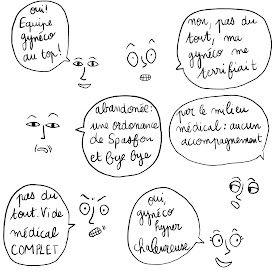 oui!
Equipe
gynéco
au top!
non, pas du
tout, ma
gynéco me
terrifiait
abandonée:
une ordonance
de Spasfon
et bye bye
par le milieu
médical: aucun
accompagnement
pas du
tout. Vide
médical
COMPLET
oui,
gynéco
hyper
chaleureuse